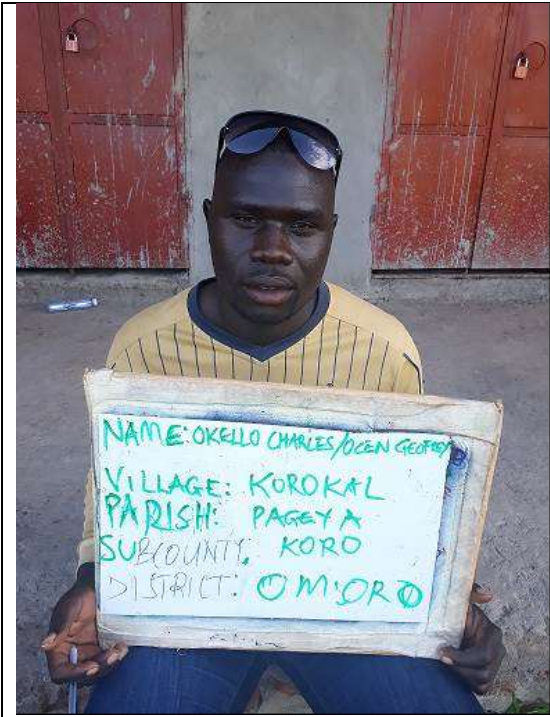 NAME: OKELLO CHARLES/OCEN GEOFREY
VILLAGE: KOROKAL
PARISH: PAGEYA
SUBCOUNTY: KORO
DISTRICT: OMORO